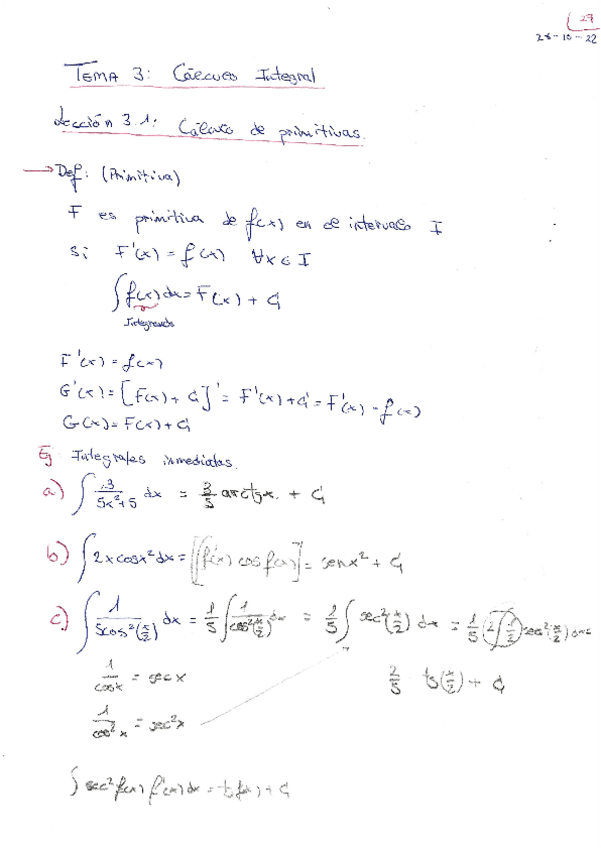 27
28-10-22
TEMA 3: Cálculo Integral
Lección 3.1: Cálculo de primitivas.
→ Def: (Primitiva)
F es primitiva de f(x) en el intervalo I
si F'(x) = f(x) ∀x ∈ I
∫ f(x) dx = F(x) + C
Integrando
F'(x) = f(x)
G'(x) = [F(x) + C]' = F'(x) + C' = F'(x) = f(x)
G(x) = F(x) + C
Ej Integrales inmediatas.
a) ∫ 3/(5x²+5) dx = 3/5 arctg x + C
b) ∫ 2x cos x² dx = [∫ f'(x) cos f(x)] = sen x² + C
c) ∫ 1/(5cos²(x/2)) dx = 1/5 ∫ 1/(cos²(x/2)) dx = 1/5 ∫ sec²(x/2) dx = 1/5 (2 ∫ (1/2) sec²(x/2) dx
1/cos x = sec x
2/5 tg(x/2) + C
1/cos² x = sec² x
∫ sec² f(x) f'(x) dx = tg f(x) + C